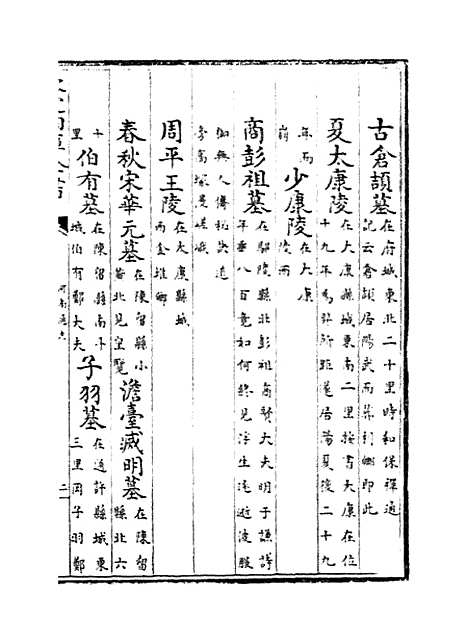 古倉頡墓在府城東北二十里時和保禪通
記云倉頡居陽武而葬利鄉即此
夏太康陵在太康縣城東南二里按書太康在位
十九年為羿所距遂居陽夏後二十九
年而
崩
少康陵在太康
陵西
商彭祖墓在鄢陵縣北彭祖商賢大夫明于謙詩
年垂八百竟如何終見浮生逐逝波服
御無人傳秘訣道
旁高塚是嵯峨
周平王陵在太康縣城
西金堆鄉
春秋宋華元墓在陳留縣小
黃北見皇覽
澹臺滅明墓在陳留
縣北六
十
里
伯有墓在陳留縣南斗
城伯有鄭大夫
子羽墓在通許縣城東
三里岡子羽鄭
河南通志